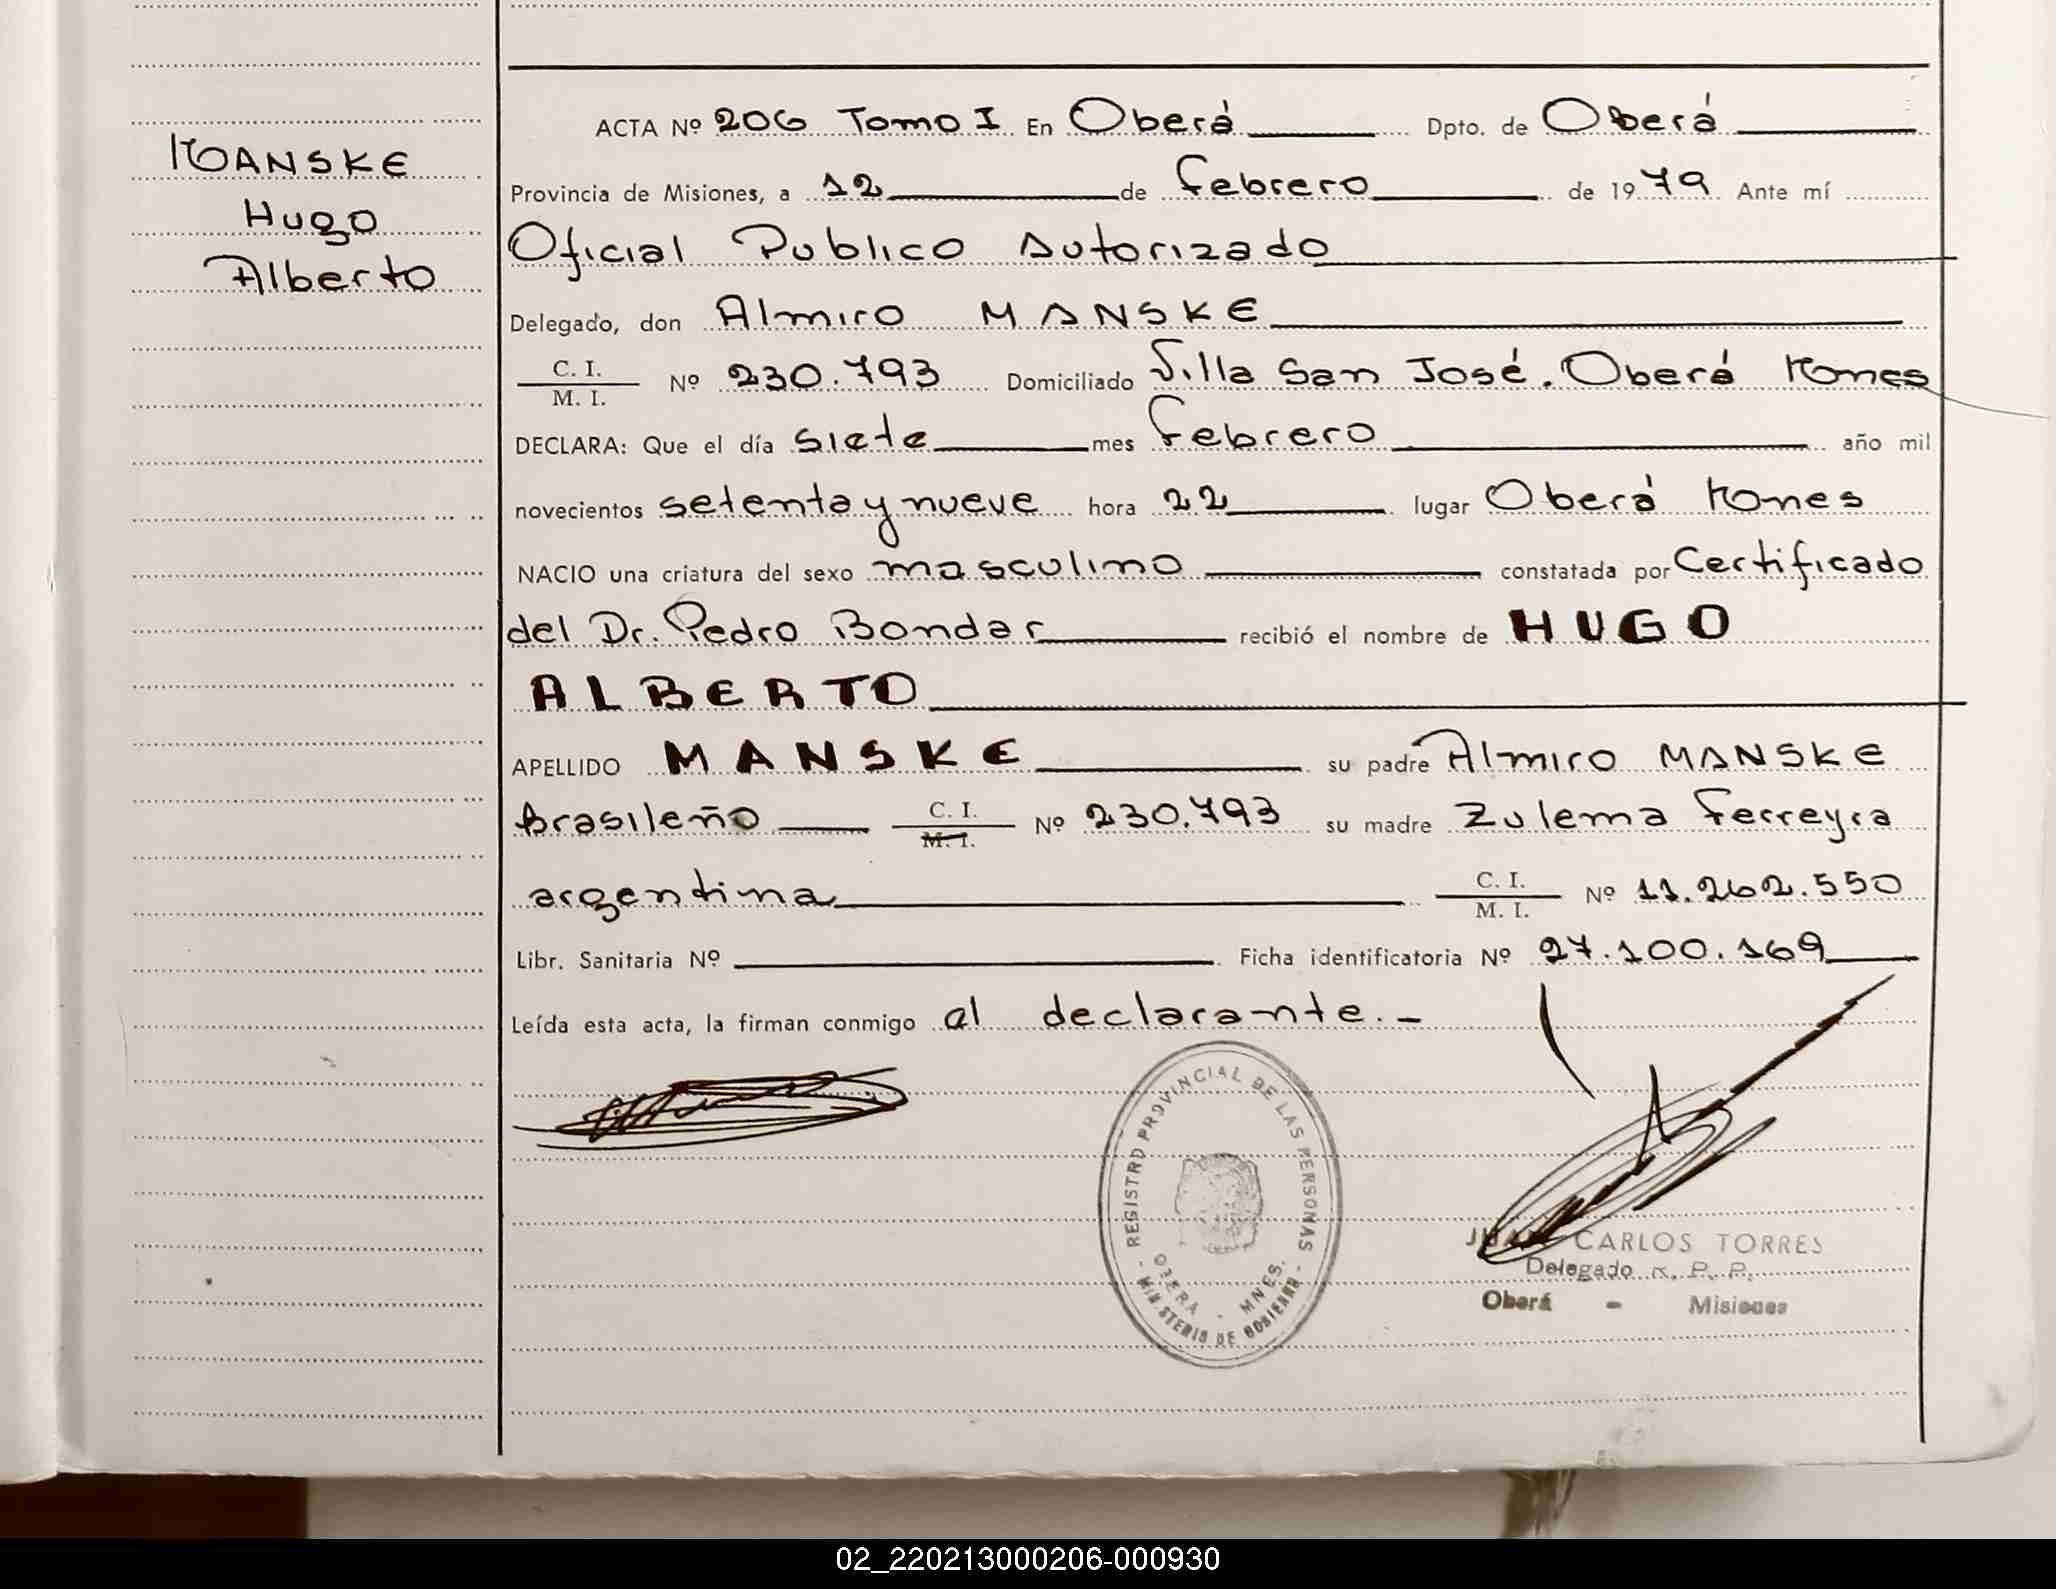 MANSKE
Hugo
Alberto
ACTA Nº 206 Tomo I En Oberá Dpto. de Oberá
Provincia de Misiones, a 12 de Febrero de 1979 Ante mí
Oficial Publico Autorizado
Delegado, don Almiro MANSKE
C. I.
M. I. Nº 230.793 Domiciliado Villa San José. Oberá Mnes
DECLARA: Que el día siete mes Febrero año mil
novecientos setenta y nueve hora 22 lugar Oberá Mnes
NACIO una criatura del sexo masculino constatada por Certificado
del Dr. Pedro Bondar recibió el nombre de HUGO
ALBERTO
APELLIDO MANSKE su padre Almiro MANSKE
brasileño C. I. M. I. Nº 230.793 su madre Zulema Ferreyra
argentina C. I. M. I. Nº 11.262.550
Libr. Sanitaria Nº Ficha identificatoria Nº 27.100.169
Leída esta acta, la firman conmigo al declarante.-
REGISTRO PROVINCIAL DE LAS PERSONAS
OBERA - MNES.
- MINISTERIO DE GOBIERNO -
JUAN CARLOS TORRES
Delegado R. P. P.
Oberá - Misiones
02_220213000206-000930